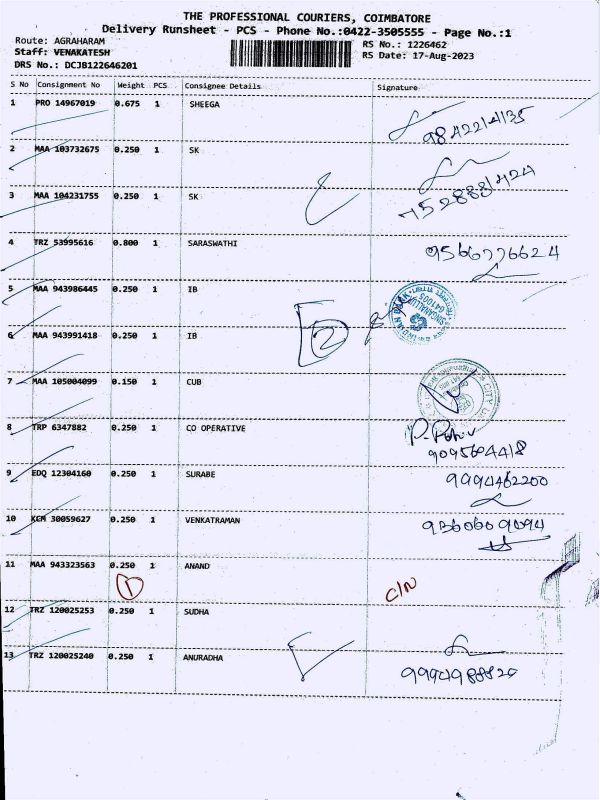 THE PROFESSIONAL COURIERS, COIMBATORE
Delivery Runsheet - PCS - Phone No.:0422-3505555 - Page No.:1
Route: AGRAHARAM RS No.: 1226462
Staff: VENAKATESH RS Date: 17-Aug-2023
DRS No.: DCJB122646201
S No Consignment No Weight PCS Consignee Details Signature
1 PRO 14967019 0.675 1 SHEEGA
9842214135
2 MAA 103732675 0.250 1 SK
3 MAA 104231755 0.250 1 SK
7528881424
4 TRZ 53995616 0.800 1 SARASWATHI 9566776624
5 MAA 943986445 0.250 1 IB
2
6 MAA 943991418 0.250 1 IB
7 MAA 105004099 0.150 1 CUB
8 TRP 6347882 0.250 1 CO OPERATIVE
9095604418
9 EDQ 12304160 0.250 1 SURABE 9994462200
10 KCM 30059627 0.250 1 VENKATRAMAN 9360609094
11 MAA 943323563 0.250 1 ANAND
1 C/N
12 TRZ 120025253 0.250 1 SUDHA
13 TRZ 120025240 0.250 1 ANURADHA
9994988820